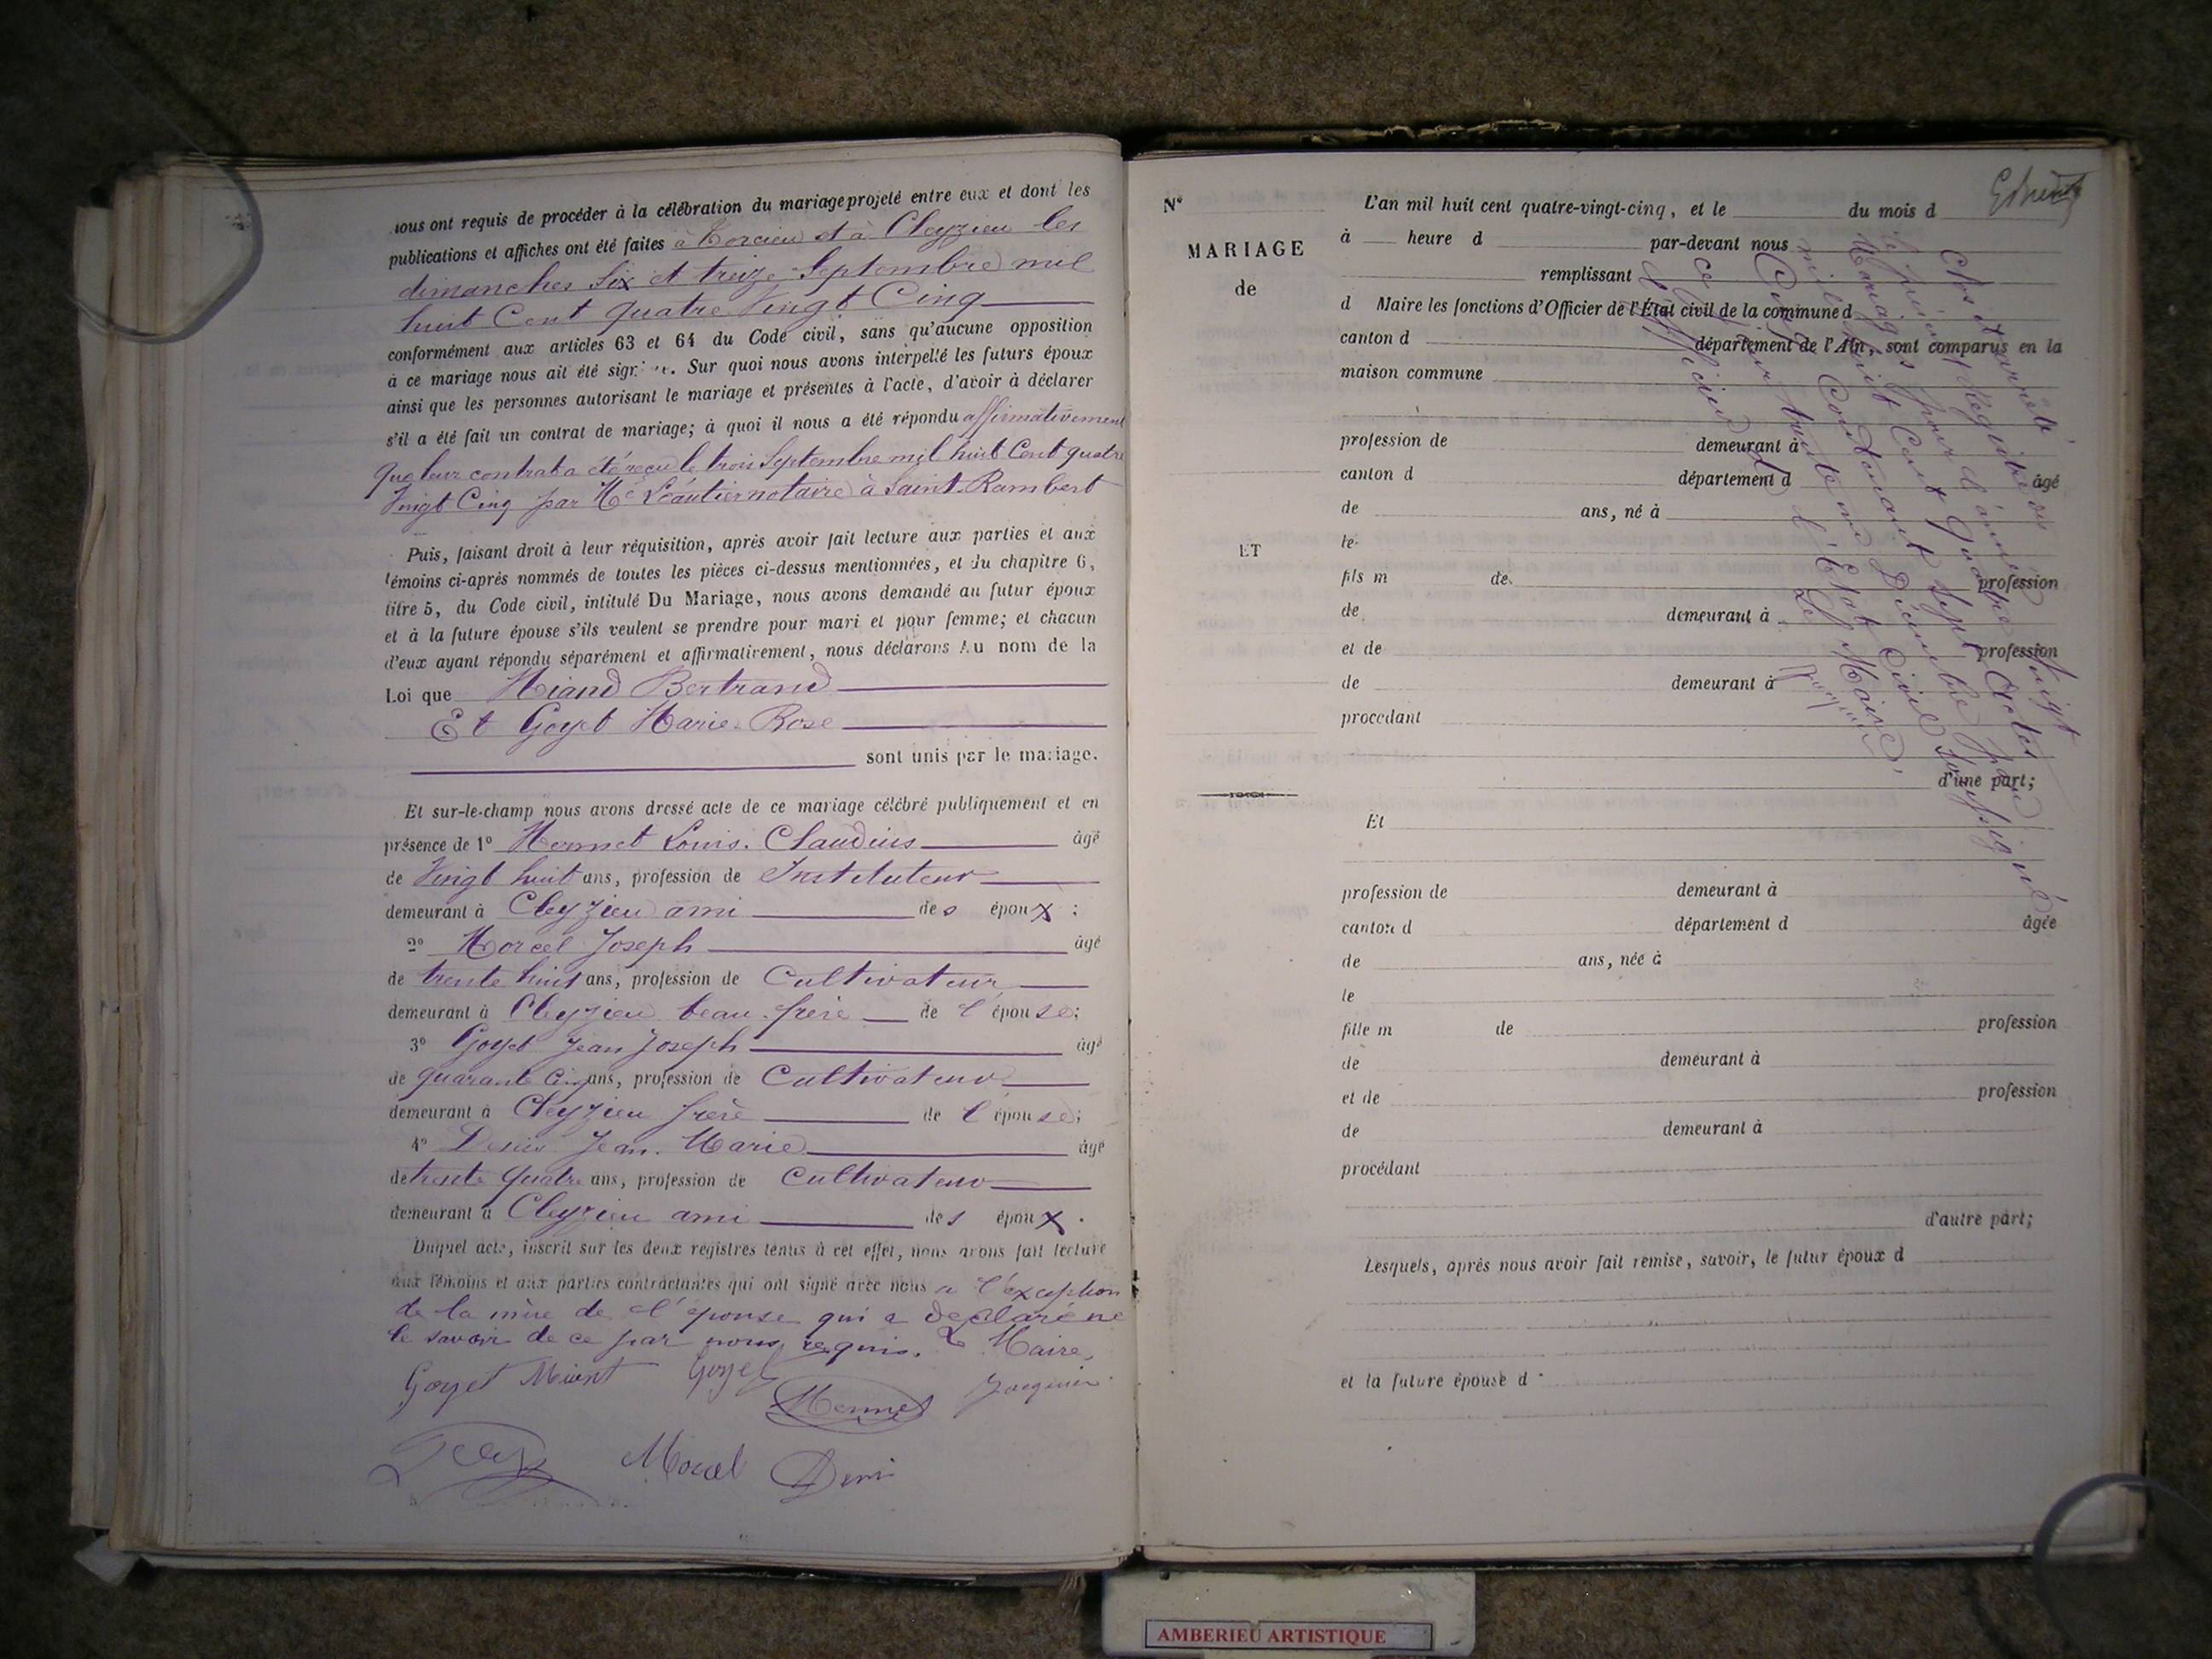 nous ont requis de procéder à la célébration du mariage projeté entre eux et dont les
publications et affiches ont été faites à Torcieu et à Cleyzieu les
dimanches Six et treize Septembre mil
huit Cent quatre Vingt Cinq
conformément aux articles 63 et 64 du Code civil, sans qu'aucune opposition
à ce mariage nous ait été . Sur quoi nous avons interpellé les futurs époux
ainsi que les personnes autorisant le mariage et présentes à l'acte, d'avoir à déclarer
s'il a été fait un contrat de mariage; à quoi il nous a été répondu affirmativement
que leur contrat a été reçu le trois Septembre mil huit Cent quatre
Vingt Cinq par Me Léautier notaire à Saint-Rambert
Puis, faisant droit à leur réquisition, après avoir fait lecture aux parties et aux
témoins ci-après nommés de toutes les pièces ci-dessus mentionnées, et du chapitre 6,
titre 5, du Code civil, intitulé Du Mariage, nous avons demandé au futur époux
et à la future épouse s'ils veulent se prendre pour mari et pour femme; et chacun
d'eux ayant répondu séparément et affirmativement, nous déclarons Au nom de la
Loi que Miand Bertrand
Et Goyet Marie-Rose
sont unis par le mariage.
Et sur-le-champ nous avons dressé acte de ce mariage célébré publiquement et en
présence de 1° Monnet Louis-Claudius âgé
de Vingt huit ans, profession de Instituteur
demeurant à Cleyzieu ami des époux ;
2° Morcel Joseph âgé
de trente huit ans, profession de Cultivateur
demeurant à Cleyzieu beau-frère de l'épouse;
3° Goyet Jean Joseph âgé
de quarante Cinq ans, profession de Cultivateur
demeurant à Cleyzieu frère de l'épouse;
4° Jean-Marie âgé
de trente quatre ans, profession de Cultivateur
demeurant à Cleyzieu ami des époux .
Duquel acte, inscrit sur les deux registres tenus à cet effet, nous avons fait lecture
aux témoins et aux parties contractantes qui ont signé avec nous a l'exception
de la mère de l'épouse qui a déclaré ne
le savoir de ce par nous requis. Le Maire,
Goyet Goyet
Monnet Jacquier
Morcel
N°
MARIAGE
de
ET
L'an mil huit cent quatre-vingt-cinq, et le du mois d
à heure d par-devant nous
remplissant
d Maire les fonctions d'Officier de l'État civil de la commune d
canton d département de l'Ain, sont comparus en la
maison commune
profession de demeurant à
canton d département d âgé
de ans, né à
le
fils m de profession
de demeurant à
et de profession
de demeurant à
procédant
d'une part;
Et
profession de demeurant à
canton d département d âgée
de ans, née à
le
fille m de profession
de demeurant à
et de profession
de demeurant à
procédant
d'autre part;
Lesquels, après nous avoir fait remise, savoir, le futur époux d
et la future épouse d
Clos et arrêté
le présent Registre des
Mariages pour l'année
mil huit Cent quatre Vingt
Cinq Contenant Sept Actes
ce jour trente un Décembre par
l'officier de l'État Civil soussigné
Le Maire,
Jacquier
AMBERIEU ARTISTIQUE